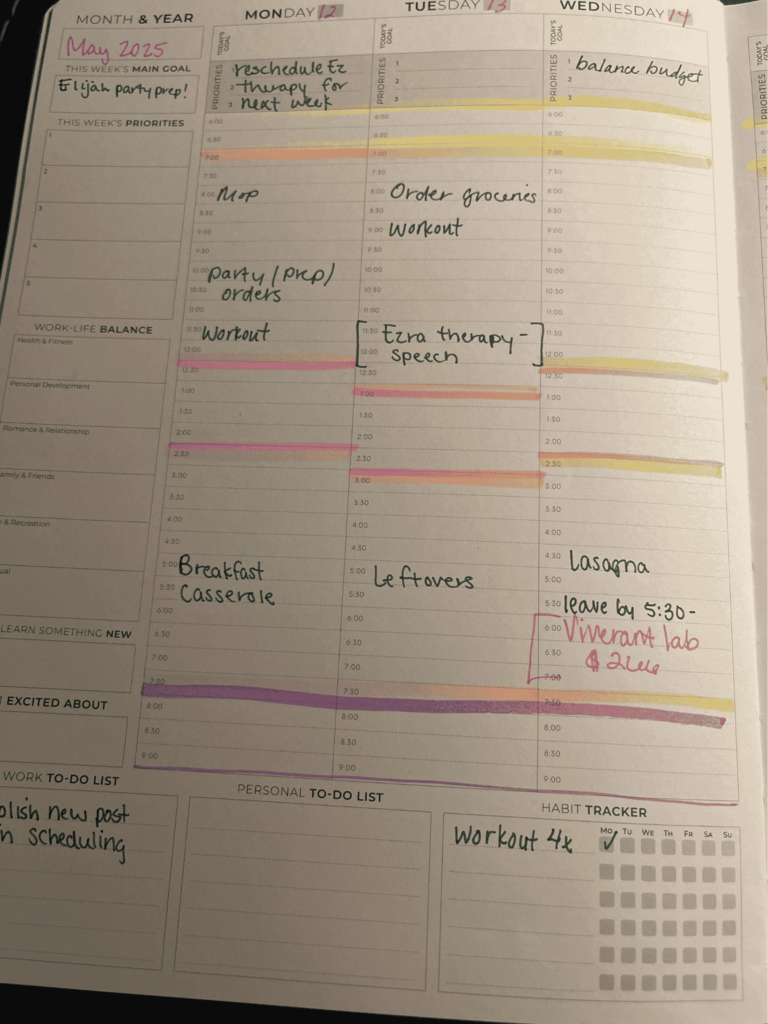 MONTH & YEAR
May 2025
THIS WEEK'S MAIN GOAL
Elijah party prep!
THIS WEEK'S PRIORITIES
1
2
3
4
5
WORK-LIFE BALANCE
Health & Fitness
Personal Development
Romance & Relationship
amily & Friends
& Recreation
ual
LEARN SOMETHING NEW
EXCITED ABOUT
MONDAY 12
TODAY'S GOAL
PRIORITIES
reschedule Ez
2 therapy for
3 next week
6:00
6:30
7:00
7:30
8:00 Mop
8:30
9:00
9:30
10:00 party/prep/
10:30 orders
11:00
11:30 Workout
12:00
12:30
1:00
1:30
2:00
2:30
3:00
3:30
4:00
4:30
5:00 Breakfast
5:30 Casserole
6:00
6:30
7:00
7:30
8:00
8:30
9:00
TUESDAY 13
TODAY'S GOAL
PRIORITIES
1
2
3
7:00
7:30
8:00 Order groceries
8:30
9:00 Workout
9:30
10:00
10:30
11:00
11:30 [Ezra therapy-]
12:00 speech
12:30
1:00
1:30
2:00
2:30
3:00
3:30
4:00
4:30
5:00 Leftovers
5:30
6:00
6:30
7:00
7:30
8:00
8:30
9:00
WEDNESDAY 14
TODAY'S GOAL
PRIORITIES
1 balance budget
2
3
6:00
6:30
7:00
7:30
8:00
8:30
9:00
9:30
10:00
10:30
11:00
11:30
12:00
12:30
1:00
1:30
2:00
2:30
3:00
3:30
4:00
4:30 Lasagna
5:00
5:30 leave by 5:30-
6:00 Viverant lab
6:30 $
7:00
7:30
8:00
8:30
9:00
TODAY'S
PRIORITIES
WORK TO-DO LIST
olish new post
n scheduling
PERSONAL TO-DO LIST
HABIT TRACKER
MO TU WE TH FR SA SU
Workout 4x ✓